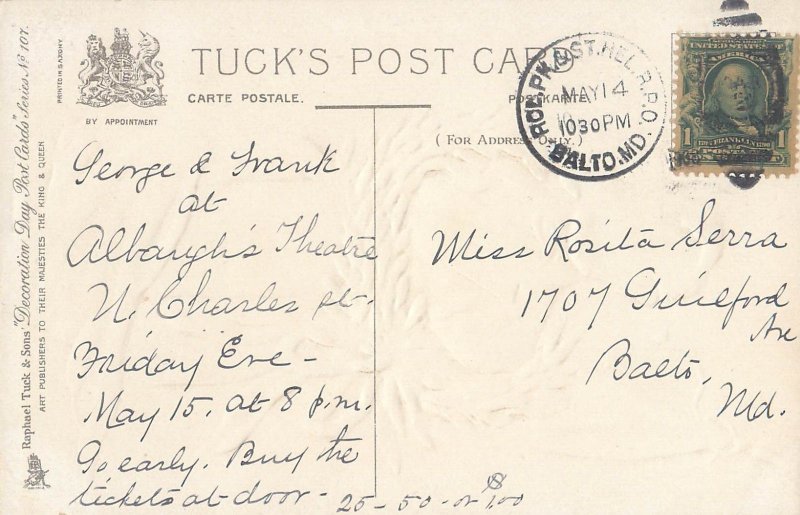 TUCK'S POST CARD
CARTE POSTALE.
POSTKARTE.
BY APPOINTMENT
PRINTED IN SAXONY
(FOR ADDRESS ONLY.)
Raphael Tuck & Sons' "Decoration Day Post Cards" Series No 107.
ART PUBLISHERS TO THEIR MAJESTIES THE KING & QUEEN
ROL. PK. & ST. HEL. R.P.O.
MAY 14
1030PM
BALTO. MD.
UNITED STATES OF
AMERICA
1 1
George & Frank
at
Albaugh's Theatre
N. Charles st.
Friday Eve -
May 15. at 8 p.m.
Go early. Buy the
tickets at door -
25 - 50 - or $1.00
Miss Rosita Serra
1707 Guilford
Ave
Balto,
Md.